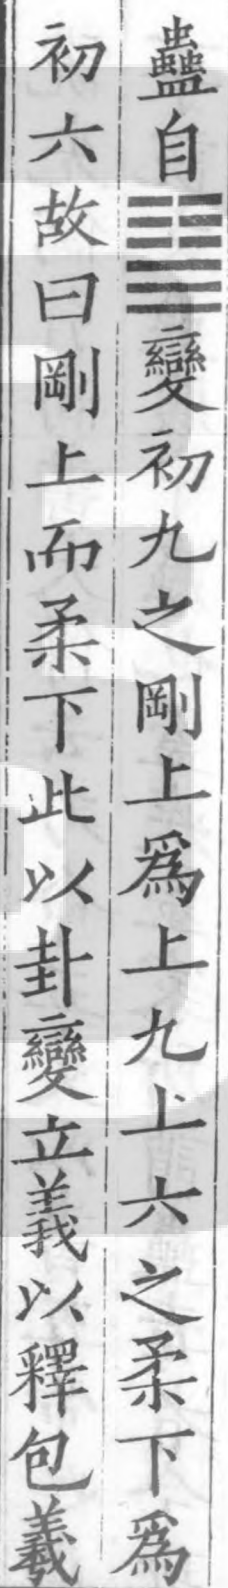 蠱自䷊變初九之剛上爲上九上六之柔下爲
初六故曰剛上而柔下此以卦變立義以釋包羲